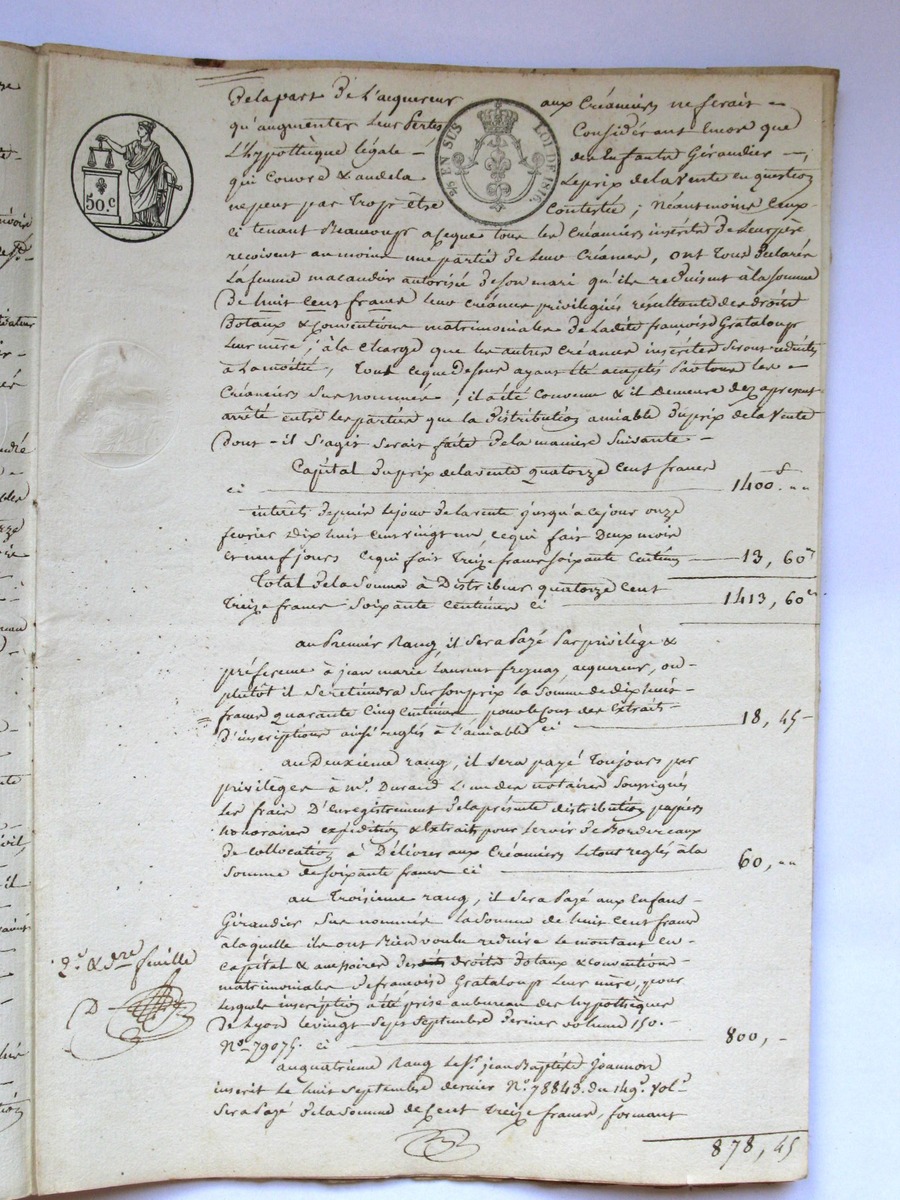 De la part De L'acquereur aux Créanciers ne ferait
qu'augmenter leur Pertes Considérant Encore que
L'hypothèque légale des Enfants Giraudier
qui Couvre & au dela Le prix de la Vente en question
ne peut pas Trop être Contestée ; Neantmoins Ceux-
ci tenant Beaucoup a ce que tous les Créanciers inscrits de Leur père
recoivent au moins une partie de Leur Créance, ont Tous declarés
La femme macaudier autorisée de son mari qu'ils reduisent à la somme
De huit Cent francs leur créance privilegiée résultante des droits
Dotaux & Conventions matrimoniales de Ladite françoise Grataloup
Leur mère, à la Charge que les autres Créances inscrites seront reduites
à La moitié, Tout ce que Dessus ayant été accepté Par tous les
Créanciers Sus nommés, il a été Convenu & il Demeure Dez apresent
arrêté entre les parties que la Distribution amiable Du prix de la Vente
Dont il S'agit Serait faite De la maniere Suivante
Capital Du prix de la vente quatorze Cent francs
ci 1400.f „„
interets Depuis le jour de la vente jusqu'a ce jour onze
fevrier Dix huit Cent vingt un, ce qui fait Deux mois
et neuf jours Ce qui fait Treize francs soixante Centimes 13, 60
Total De la Somme à Distribuer quatorze Cent
Treize francs Soixante Centimes ci 1413, 60
au Premier Rang, il Sera Payé Par privilège &
préférence à jean marie Laurent freynay, acquereur, ou
plutôt il Se retiendra Sur Son prix la Somme de Dix huit
francs quarante Cinq Centimes pour le Cout des Extraits
D'inscriptions ainsi reglés à L'amiable Ci 18, 45
au Deuxieme rang, il sera payé Toujours par
privilèges à mr. Durand L'un des notaires Soussignés
Les frais D'Enregistrement De la présente distribution papiers
honoraires expédition & Extraits pour Servir de Bordereaux
de Collocation à Délivrer aux Créanciers Le tout reglés à la
Somme de soixante francs ci 60, „„
au Troisieme rang, il Sera Payé aux Enfans
Giraudier Sus nommés la Somme de huit Cent francs
a laquelle ils ont Bien voulu reduire Le montant en
Capital & accessoires des droits Dotaux & Convention
matrimoniales De francoise Grataloup Leur mère, pour
lesquels inscription a été prise au bureau des hypothèques
De Lyon le vingt Sept Septembre Dernier volume 150.
No. 79075. ci 800, -
au quatrieme Rang Le Sr. jean Baptiste Joannon
inscrit Le huit Septembre dernier No. 78843. du 149e. vole.
Sera Payé De la Somme de Cent Treize francs, formant
878, 45
50.c
EN SUS LOI DE 1816.
2e. & dre feuille
D